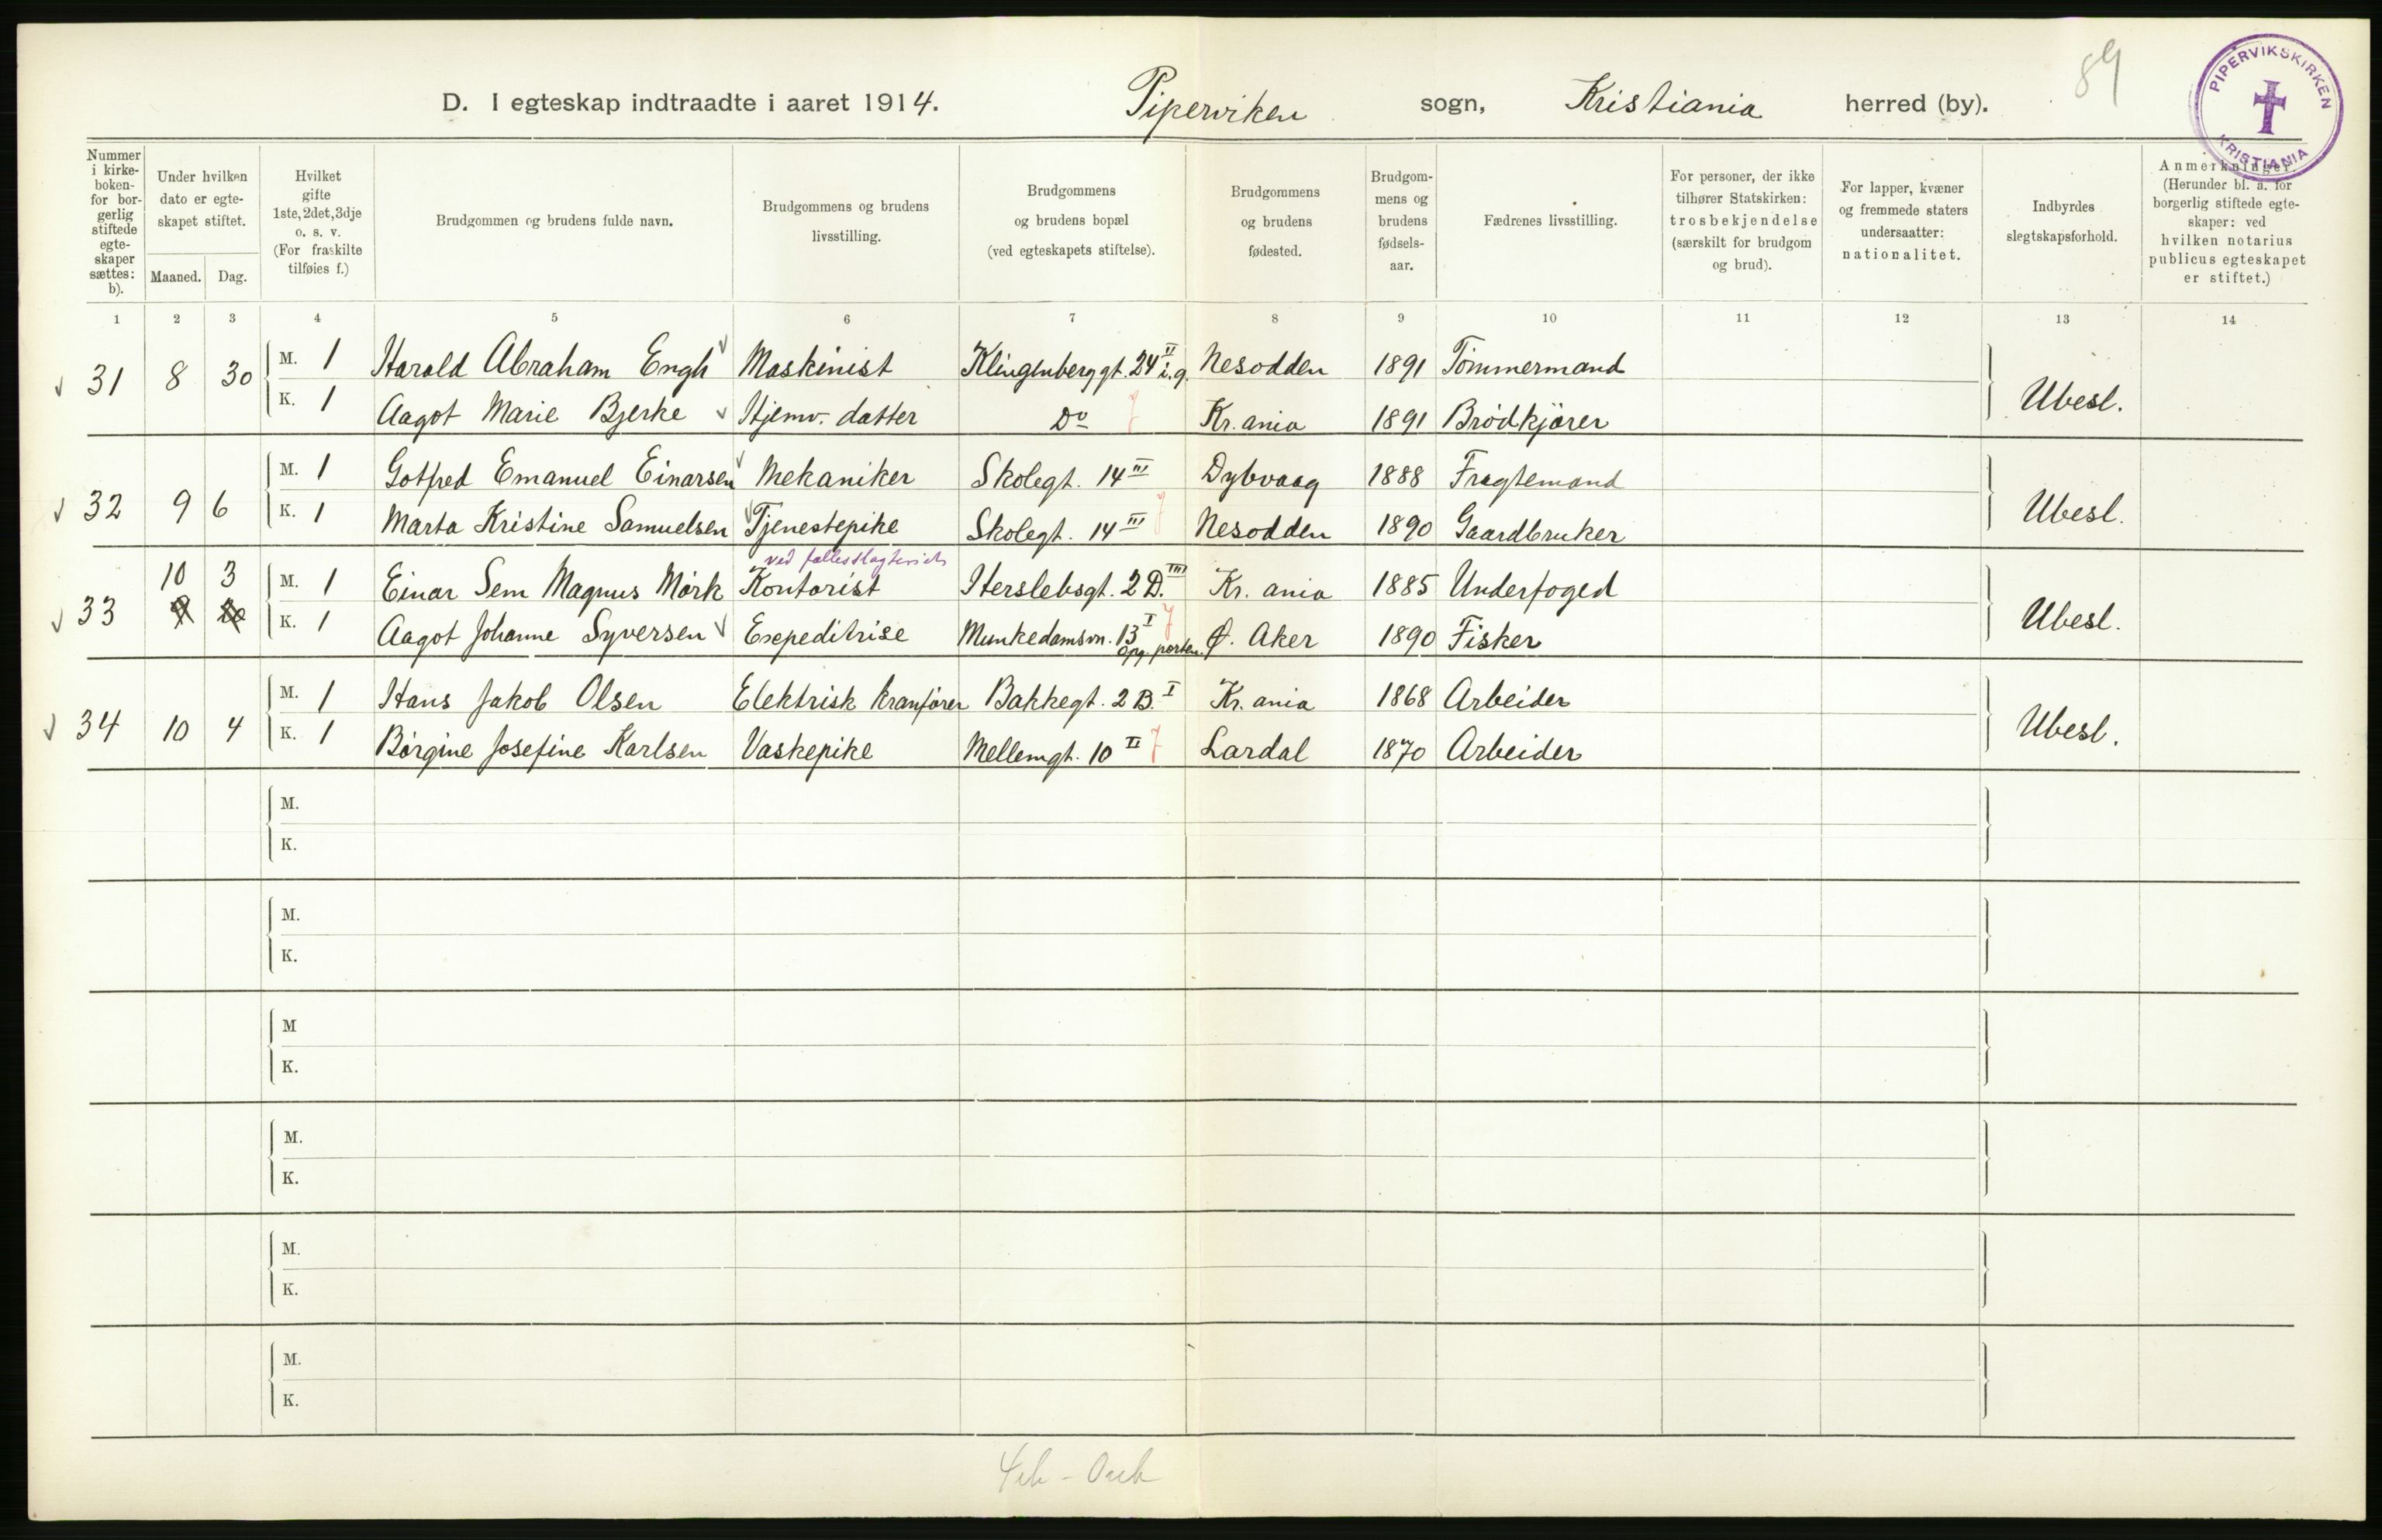 89
PIPERVIKSKIRKEN
KRISTIANIA
D. I egteskap indtraadte i aaret 1914. Piperviken sogn, Kristiania herred (by).
Nummer i kirke-boken- for bor-gerlig stiftede egte-skaper sættes: b).
Under hvilken dato er egte-skapet stiftet.
Maaned. Dag.
Hvilket gifte 1ste, 2det, 3dje o. s. v. (For fraskilte tilføies f.)
Brudgommen og brudens fulde navn.
Brudgommens og brudens livsstilling.
Brudgommens og brudens bopæl (ved egteskapets stiftelse).
Brudgommens og brudens fødested.
Brudgom-mens og brudens fødsels-aar.
Fædrenes livsstilling.
For personer, der ikke tilhører Statskirken: trosbekjendelse (særskilt for brudgom og brud).
For lapper, kvæner og fremmede staters undersaatter: nationalitet.
Indbyrdes slegtskapsforhold.
Anmerkninger. (Herunder bl. a. for borgerlig stiftede egte-skaper: ved hvilken notarius publicus egteskapet er stiftet.)
1 2 3 4 5 6 7 8 9 10 11 12 13 14
31 8 30 M. 1 Harald Abraham Engh Maskinist Klingenberggt. 24 II i.g. Nesodden 1891 Tømmermand Ubesl.
K. 1 Aagot Marie Bjerke Hjemv. datter Do Kr.ania 1891 Brødkjører
32 9 6 M. 1 Gotfred Emanuel Einarsen Mekaniker Skolegt. 14 III Dybvaag 1888 Fragtemand Ubesl.
K. 1 Marta Kristine Samuelsen Tjenestepike Skolegt. 14 III Nesodden 1890 Gaardbruker
ved fællesslagteriet
33 10 3 M. 1 Einar Sem Magnus Mørk Kontorist Herslebsgt. 2 D. III Kr. ania 1885 Underfoged Ubesl.
K. 1 Aagot Johanne Syversen Exepeditrise Munkedamsvn. 13 I opg. porten. Ø. Aker 1890 Fisker
34 10 4 M. 1 Hans Jakob Olsen Elektrisk kranfører Bakkegt. 2 B. I Kr. ania 1868 Arbeider Ubesl.
K. 1 Børgine Josefine Karlsen Vaskepike Mellemgt. 10 II Lardal 1870 Arbeider
M.
K.
M.
K.
M
K.
M.
K.
M.
K.
M.
K.